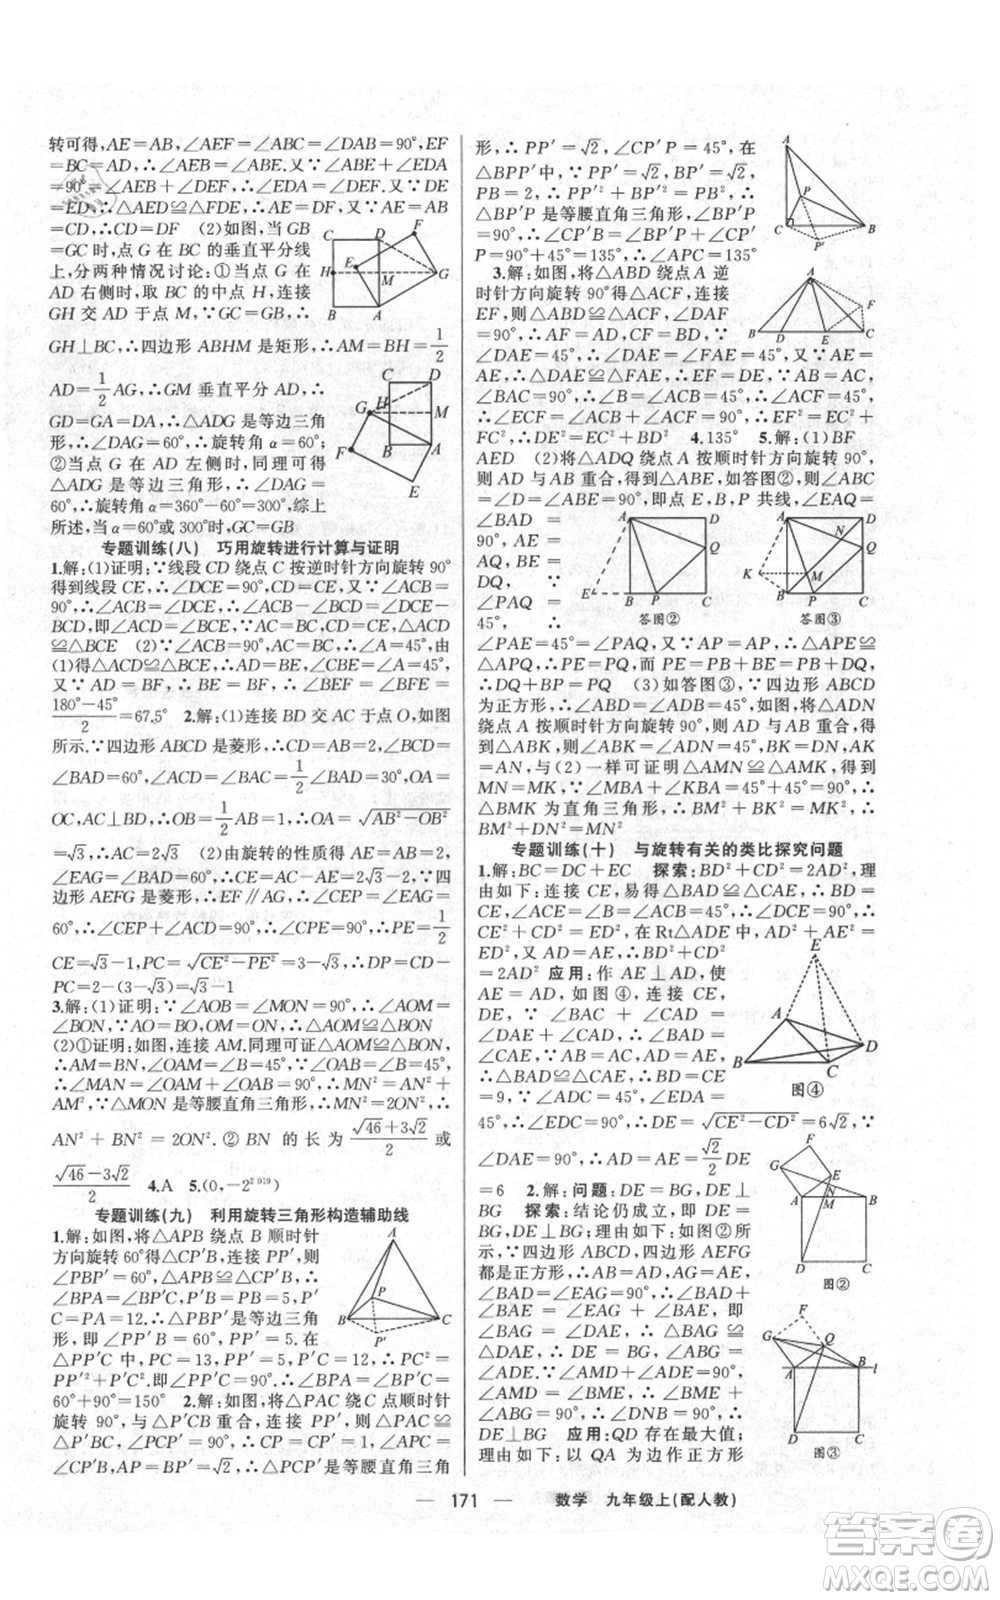 转可得,AE=AB,∠AEF=∠ABC=∠DAB=90°,EF
=BC=AD,∴∠AEB=∠ABE.又∵∠ABE+∠EDA
=90°=∠AEB+∠DEF,∴∠EDA=∠DEF.又∵DE
=ED,∴△AED≌△FDE,∴AE=DF,又∵AE=AB=
CD,∴CD=DF (2)如图,当GB
=GC时,点G在BC的垂直平分线
上,分两种情况讨论:①当点G在
AD右侧时,取BC的中点H,连接
GH交AD于点M,∵GC=GB,∴
GH⊥BC,∴四边形ABHM是矩形,∴AM=BH=1/2
AD=1/2AG,∴GM垂直平分AD,∴
GD=GA=DA,∴△ADG是等边三角
形,∴∠DAG=60°,∴旋转角α=60°;
②当点G在AD左侧时,同理可得
△ADG是等边三角形,∴∠DAG=
60°,∴旋转角α=360°-60°=300°,综上
所述,当α=60°或300°时,GC=GB
专题训练(八) 巧用旋转进行计算与证明
1.解:(1)证明:∵线段CD绕点C按逆时针方向旋转90°
得到线段CE,∴∠DCE=90°,CD=CE,又∵∠ACB=
90°,∴∠ACB=∠DCE,∴∠ACB-∠DCB=∠DCE-
∠DCB,即∠ACD=∠BCE,∴△ACD
≌△BCE (2)∵∠ACB=90°,AC=BC,∴∠A=45°,由
(1)得△ACD≌△BCE,∴AD=BE,∠CBE=∠A=45°,
又∵AD=BF,∴BE=BF,∴∠BEF=
(180°-45°)/2=67.5° 2.解:(1)连接BD交AC于点O,如图
所示.∵四边形ABCD是菱形,∴CD=AB=2,∠BCD=
∠BAD=60°,∠ACD=∠BAC=1/2∠BAD=30°,OA=
OC,AC⊥BD,∴OB=1/2AB=1,∴OA=√(AB²-OB²)
=√3,∴AC=2√3 (2)由旋转的性质得AE=AB=2,
∠EAG=∠BAD=60°,∴CE=AC-AE=2√3-2,∵四
边形AEFG是菱形,∴EF∥AG,∴∠CEP=∠EAG=
60°,∴∠CEP+∠ACD=90°,∴∠CPE=90°,∴PE=1/2
CE=√3-1,PC=√(CE²-PE²)=3-√3,∴DP=CD-
PC=2-(3-√3)=√3-1
3.解:(1)证明:∵∠AOB=∠MON=90°,∴∠AOM=
∠BON,∵AO=BO,OM=ON,∴△AOM≌△BON
(2)①证明:如图,连接AM.同理可证△AOM≌△BON,
∴AM=BN,∠OAM=∠B=45°,∵∠OAB=∠B=45°,
∴∠MAN=∠OAM+∠OAB=90°,∴MN²=AN²+
AM²,∵△MON是等腰直角三角形,∴MN²=2ON²,∴
AN²+BN²=2ON².②BN的长为(√46+3√2)/2或
(√46-3√2)/2 4.A 5.(0,-2²⁰¹⁹)
专题训练(九) 利用旋转三角形构造辅助线
1.解:如图,将△APB绕点B顺时针
方向旋转60°得△CP′B,连接PP′,则
∠PBP′=60°,△APB≌△CP′B,∴
∠BPA=∠BP′C,P′B=PB=5,P′
C=PA=12.∴△PBP′是等边三角
形,即∠BP′B=60°,PP′=5.在
△PP′C中,PC=13,∴PC²=
PP′²+P′C²,∴∠PP′C=90°,∴∠BPA=∠BP′C=
60°+90°=150° 2.解:如图,将△PAC绕C点顺时针
旋转90°,与△P′CB重合,连接PP′,则△APC≌
△P′BC,∴∠PCP′=∠ACB=90°,PC=P′C=1,
∠CP′B=∠APC,P′B=PA=√6,∴△PCP′是等腰直角三角
形,∴PP′=√2,∠CP′P=45°,在
△BPP′中,PP′=√2,P′B=√6,
PB=2,∴PP′²+PB²=P′B²,
∴△BP′P是等腰直角三角形,∴∠BP′P
=90°,∴∠CP′B=∠CP′P+∠BP′
P=90°+45°=135°,∴∠APC=135°
3.解:如图,将△ABD绕点A逆
时针方向旋转90°得△ACF,连接
EF,则△ABD≌△ACF,∠DAF=
90°,∴AF=AD,CF=BD,∵
∠DAE=45°,∴∠DAE=∠FAE=45°,又∵AE=
AE,∴△DAE≌△FAE,∴EF=DE,又∵AB=AC,
∠BAC=90°,∴∠B=∠ACB=45°,∴∠ACF=45°,
∴∠ECF=∠ACF+∠ACB=90°,∴EF²=EC²+
FC²,∴DE²=EC²+BD² 4.135° 5.解:(1)BF
AED (2)将△ADQ绕点A按顺时针方向旋转90°,
则AD与AB重合,得到△ABE,如答图②,则∠ABC
=∠D=∠ABE=90°,即点E,B,P共线,∠EAQ=
∠BAD=
90°,AE=
AQ,BE=
DQ,∵
∠PAQ=
45°,∴
∠PAE=45°=∠PAQ,又∵AP=AP,∴△APE≌
△APQ,∴PE=PQ,而PE=PB+BE=PB+DQ,
∴DQ+BP=PQ (3)如答图③,∵四边形ABCD
为正方形,∴∠ABD=∠ADB=45°,如图,将△ADN
绕点A按顺时针方向旋转90°,则AD与AB重合,得
到△ABK,则∠ABK=∠ADN=45°,BK=DN,AK=
AN,与(2)一样可证明△AMN≌△AMK,得到
MN=MK,∵∠MBA+∠KBA=45°+45°=90°,∴
△BMK为直角三角形,∴BM²+BK²=MK²,∴
BM²+DN²=MN²
专题训练(十) 与旋转有关的类比探究问题
1.解:BC=DC+EC 探索:BD²+CD²=2AD²,理
由如下:连接CE,易得△BAD≌△CAE,∴BD=CE,
∠ACE=∠B=∠ACB=45°,∴∠DCE=90°,∴
CE²+CD²=ED²,在Rt△ADE中,AD²+AE²=
ED²,又AD=AE,∴BD²+CD²
=2AD² 应用:作AE⊥AD,使
AE=AD,如图④,连接CE,
DE,∵∠BAC+∠CAD=
∠DAE+∠CAD,∴∠BAD=
∠CAE,∴△BAD≌△CAE,∴BD=CE
=9,∵∠ADC=45°,∠EDA=
45°,∴∠EDC=90°,∴DE=√(CE²-CD²)=6√2,∵
∠DAE=90°,∴AD=AE=√2/2DE
=6 2.解:问题:DE=BG,DE⊥
BG 探索:结论仍成立,即DE=
BG,DE⊥BG;理由如下:如图
②,∵四边形ABCD、四边形AEFG
都是正方形,∴AE=AG,AB=AD,
∠BAD=∠EAG=90°,∴∠BAD+
∠BAE=∠EAG+∠BAE,即
∠BAG=∠DAE,∴△BAG≌
△DAE,∴BG=DE,∠ABG=
∠ADE.∵∠AMD+∠ADE=90°,
∠AMD=∠BME,∴∠BME+
∠ABG=90°,∴∠DNB=90°,∴
DE⊥BG 应用:QD存在最大值;
理由如下:以QA为边作正方形
C
D
F
E
H
M
G
B
A
C
D
G
H
M
F
B
A
E
A
P
B
C
P′
A
P
C
B
P′
A
F
B
D
E
C
A
D
Q
E
B
P
C
答图②
A
D
N
Q
K
M
B
P
C
答图③
E
A
B
C
D
图④
F
G
E
N
A
M
B
D
C
图②
F
G
Q
A
B
l
D
C
图③
— 171 — 数学 九年级上(配人教)
答案圈
MXQE.COM